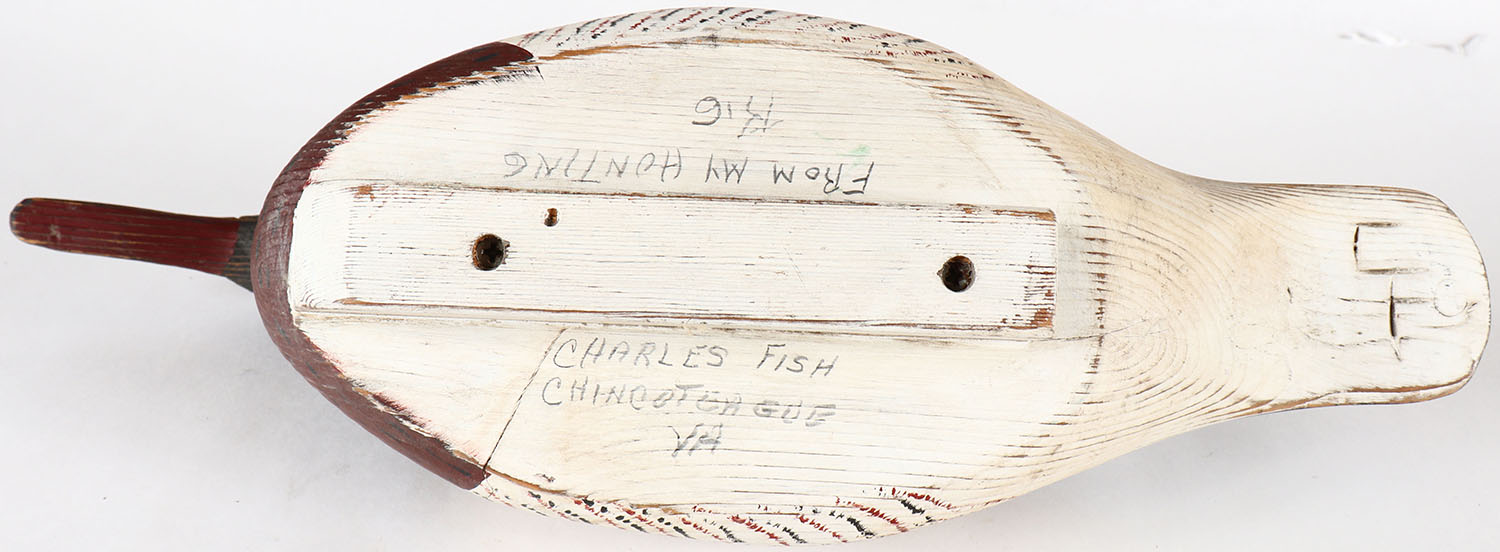 FROM MY HUNTING
RIG
CHARLES FISH
CHINCOTEAGUE
VA